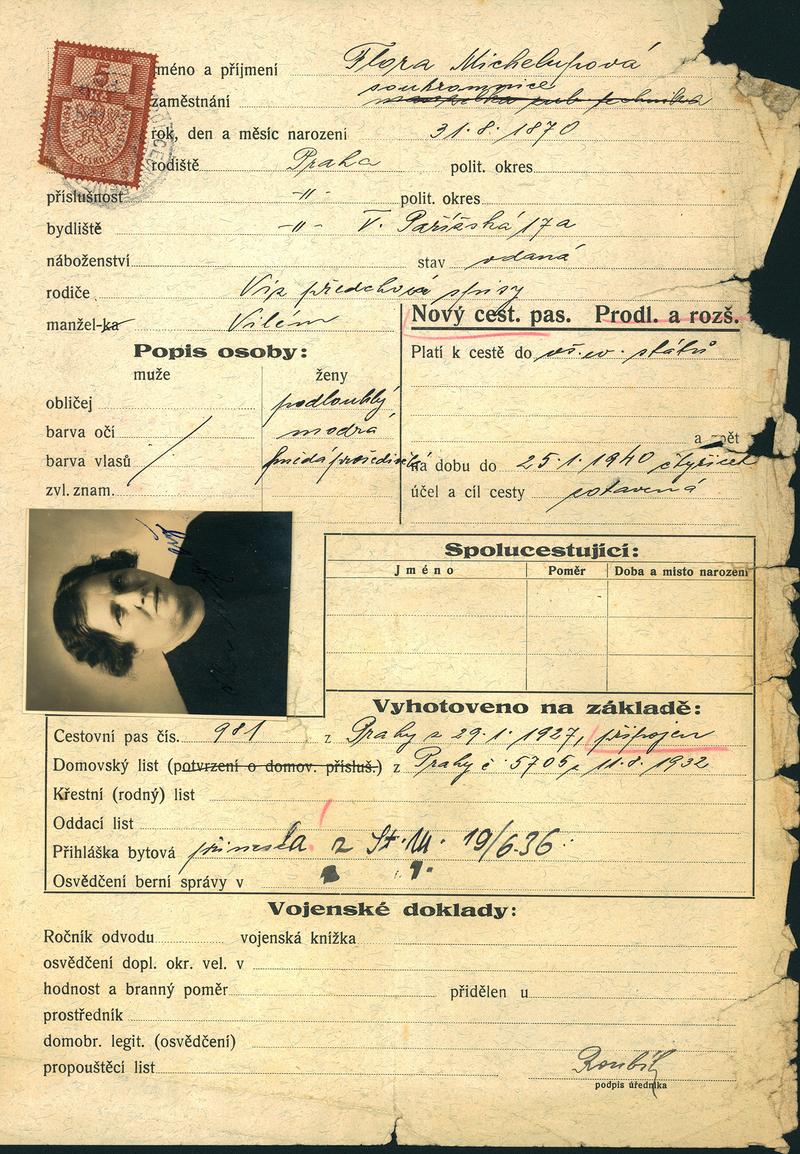 5 Kč
Jméno a příjmení Flora Michelupová
soukromnice
zaměstnání
rok, den a měsíc narození 31. 8. 1870
rodiště Praha polit. okres
příslušnost -"- polit. okres
bydliště -"- V. Pařížská 17a
náboženství stav vdaná
rodiče Viz předchozí spisy
manžel-ka Vilém
Nový cest. pas. Prodl. a rozš.
Platí k cestě do vš. ev. států
a zpět
na dobu do 25. 1. 1940 čtyřicet
účel a cíl cesty zotavená
Popis osoby:
muže ženy
obličej podlouhlý
barva očí modrá
barva vlasů hnědá prošedivělá
zvl. znam.
Spolucestující:
Jméno Poměr Doba a místo narození
Vyhotoveno na základě:
Cestovní pas čís. 981 z Prahy z 29. 1. 1927, připojen
Domovský list (potvrzení o domov. přísluš.) z Prahy č. 5705 z 11. 8. 1932
Křestní (rodný) list
Oddací list
Přihláška bytová přinesla! z St. M. 19/6 36
Osvědčení berní správy v
Vojenské doklady:
Ročník odvodu vojenská knížka
osvědčení dopl. okr. vel. v
hodnost a branný poměr přidělen u
prostředník
domobr. legit. (osvědčení)
propouštěcí list
podpis úředníka